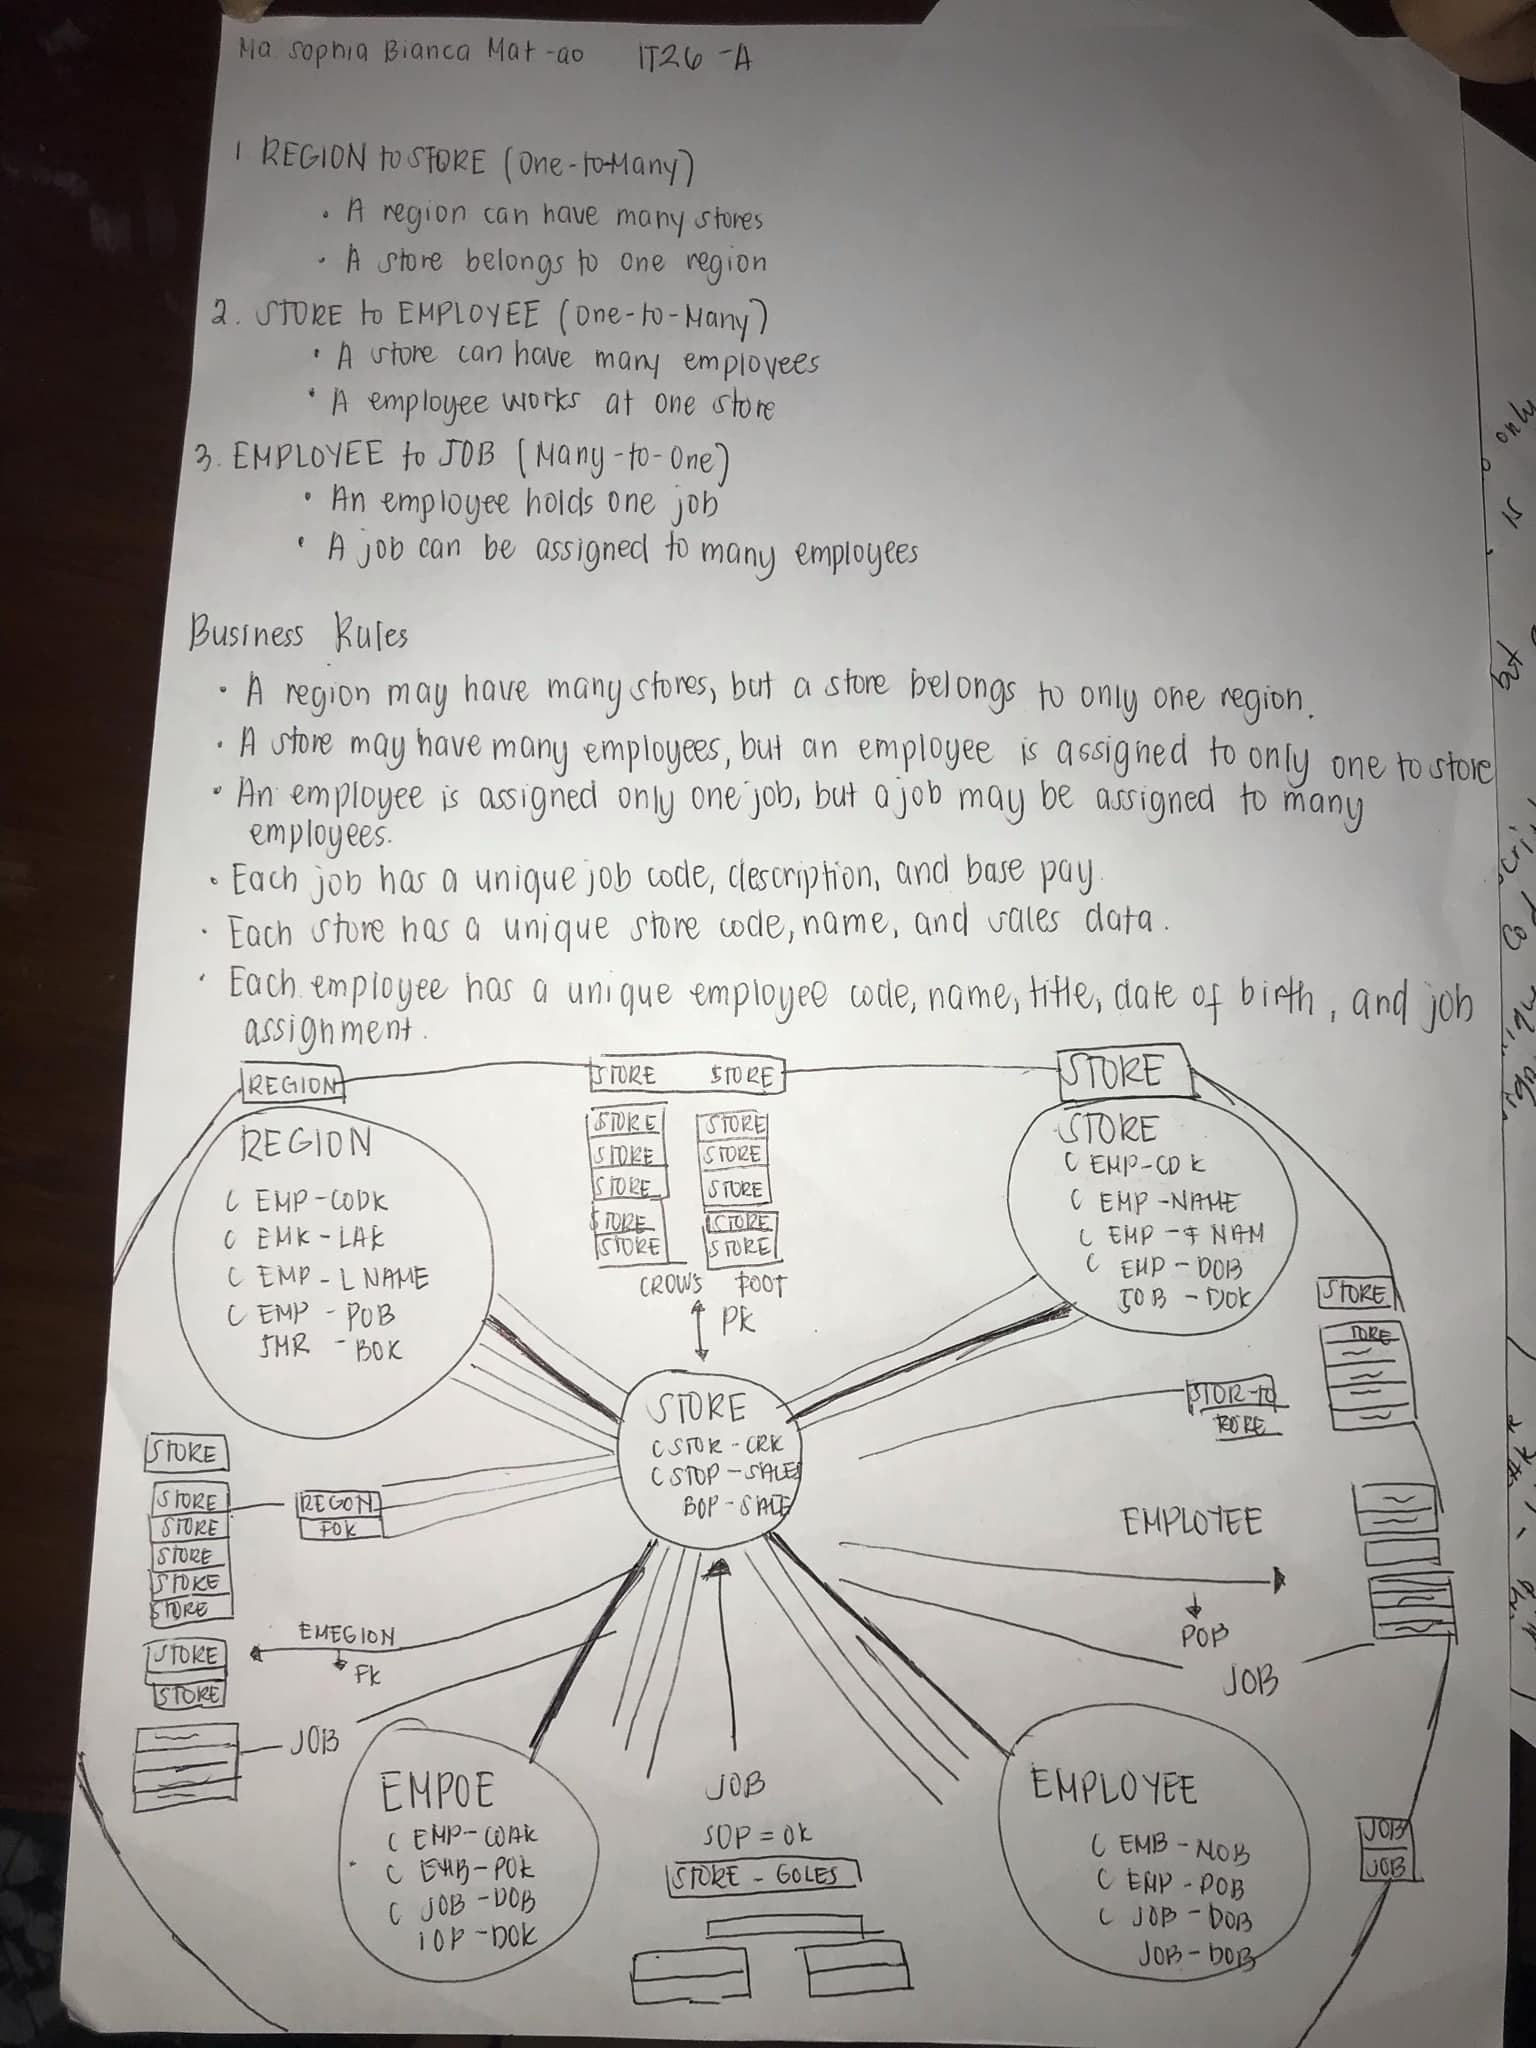 Ma. Sophia Bianca Mat-ao IT26-A
1 REGION to STORE (One-to-Many)
• A region can have many stores
• A store belongs to one region
2. STORE to EMPLOYEE (One-to-Many)
• A store can have many employees
• A employee works at one store
3. EMPLOYEE to JOB (Many-to-One)
• An employee holds one job
• A job can be assigned to many employees
Business Rules
• A region may have many stores, but a store belongs to only one region.
• A store may have many employees, but an employee is assigned to only one to store
• An employee is assigned only one job, but a job may be assigned to many
employees.
• Each job has a unique job code, description, and base pay.
• Each store has a unique store code, name, and sales data.
• Each employee has a unique employee code, name, title, date of birth, and job
assignment.
REGION
STORE STORE
STORE
REGION
C EMP-CODK
C EMK-LAK
C EMP-L NAME
C EMP-POB
JMR-BOK
STORE STORE
STORE STORE
STORE STORE
STORE STORE
STORE STORE
CROWS FOOT
PK
STORE
C EMP-CDK
C EMP-NAME
C EMP-F NAM
C EMP-DOB
JOB-DOK
STORE
TORE
STOR-TO
RORE
STORE
C STOR-CRK
C STOP-SALES
BOP-SALE
STORE
STORE
STORE
STORE
STORE
STORE
REGON
FOK
STORE
STORE
EMEGION
FK
JOB
EMPLOYEE
POB
JOB
EMPOE
C EMP-COAK
C EMB-POK
C JOB-DOB
IOP-DOK
JOB
SOP=OK
STORE-GOLES
EMPLOYEE
C EMB-NOB
C EMP-POB
C JOB-DOB
JOB-DOB
JOB
JOB
only
is
but